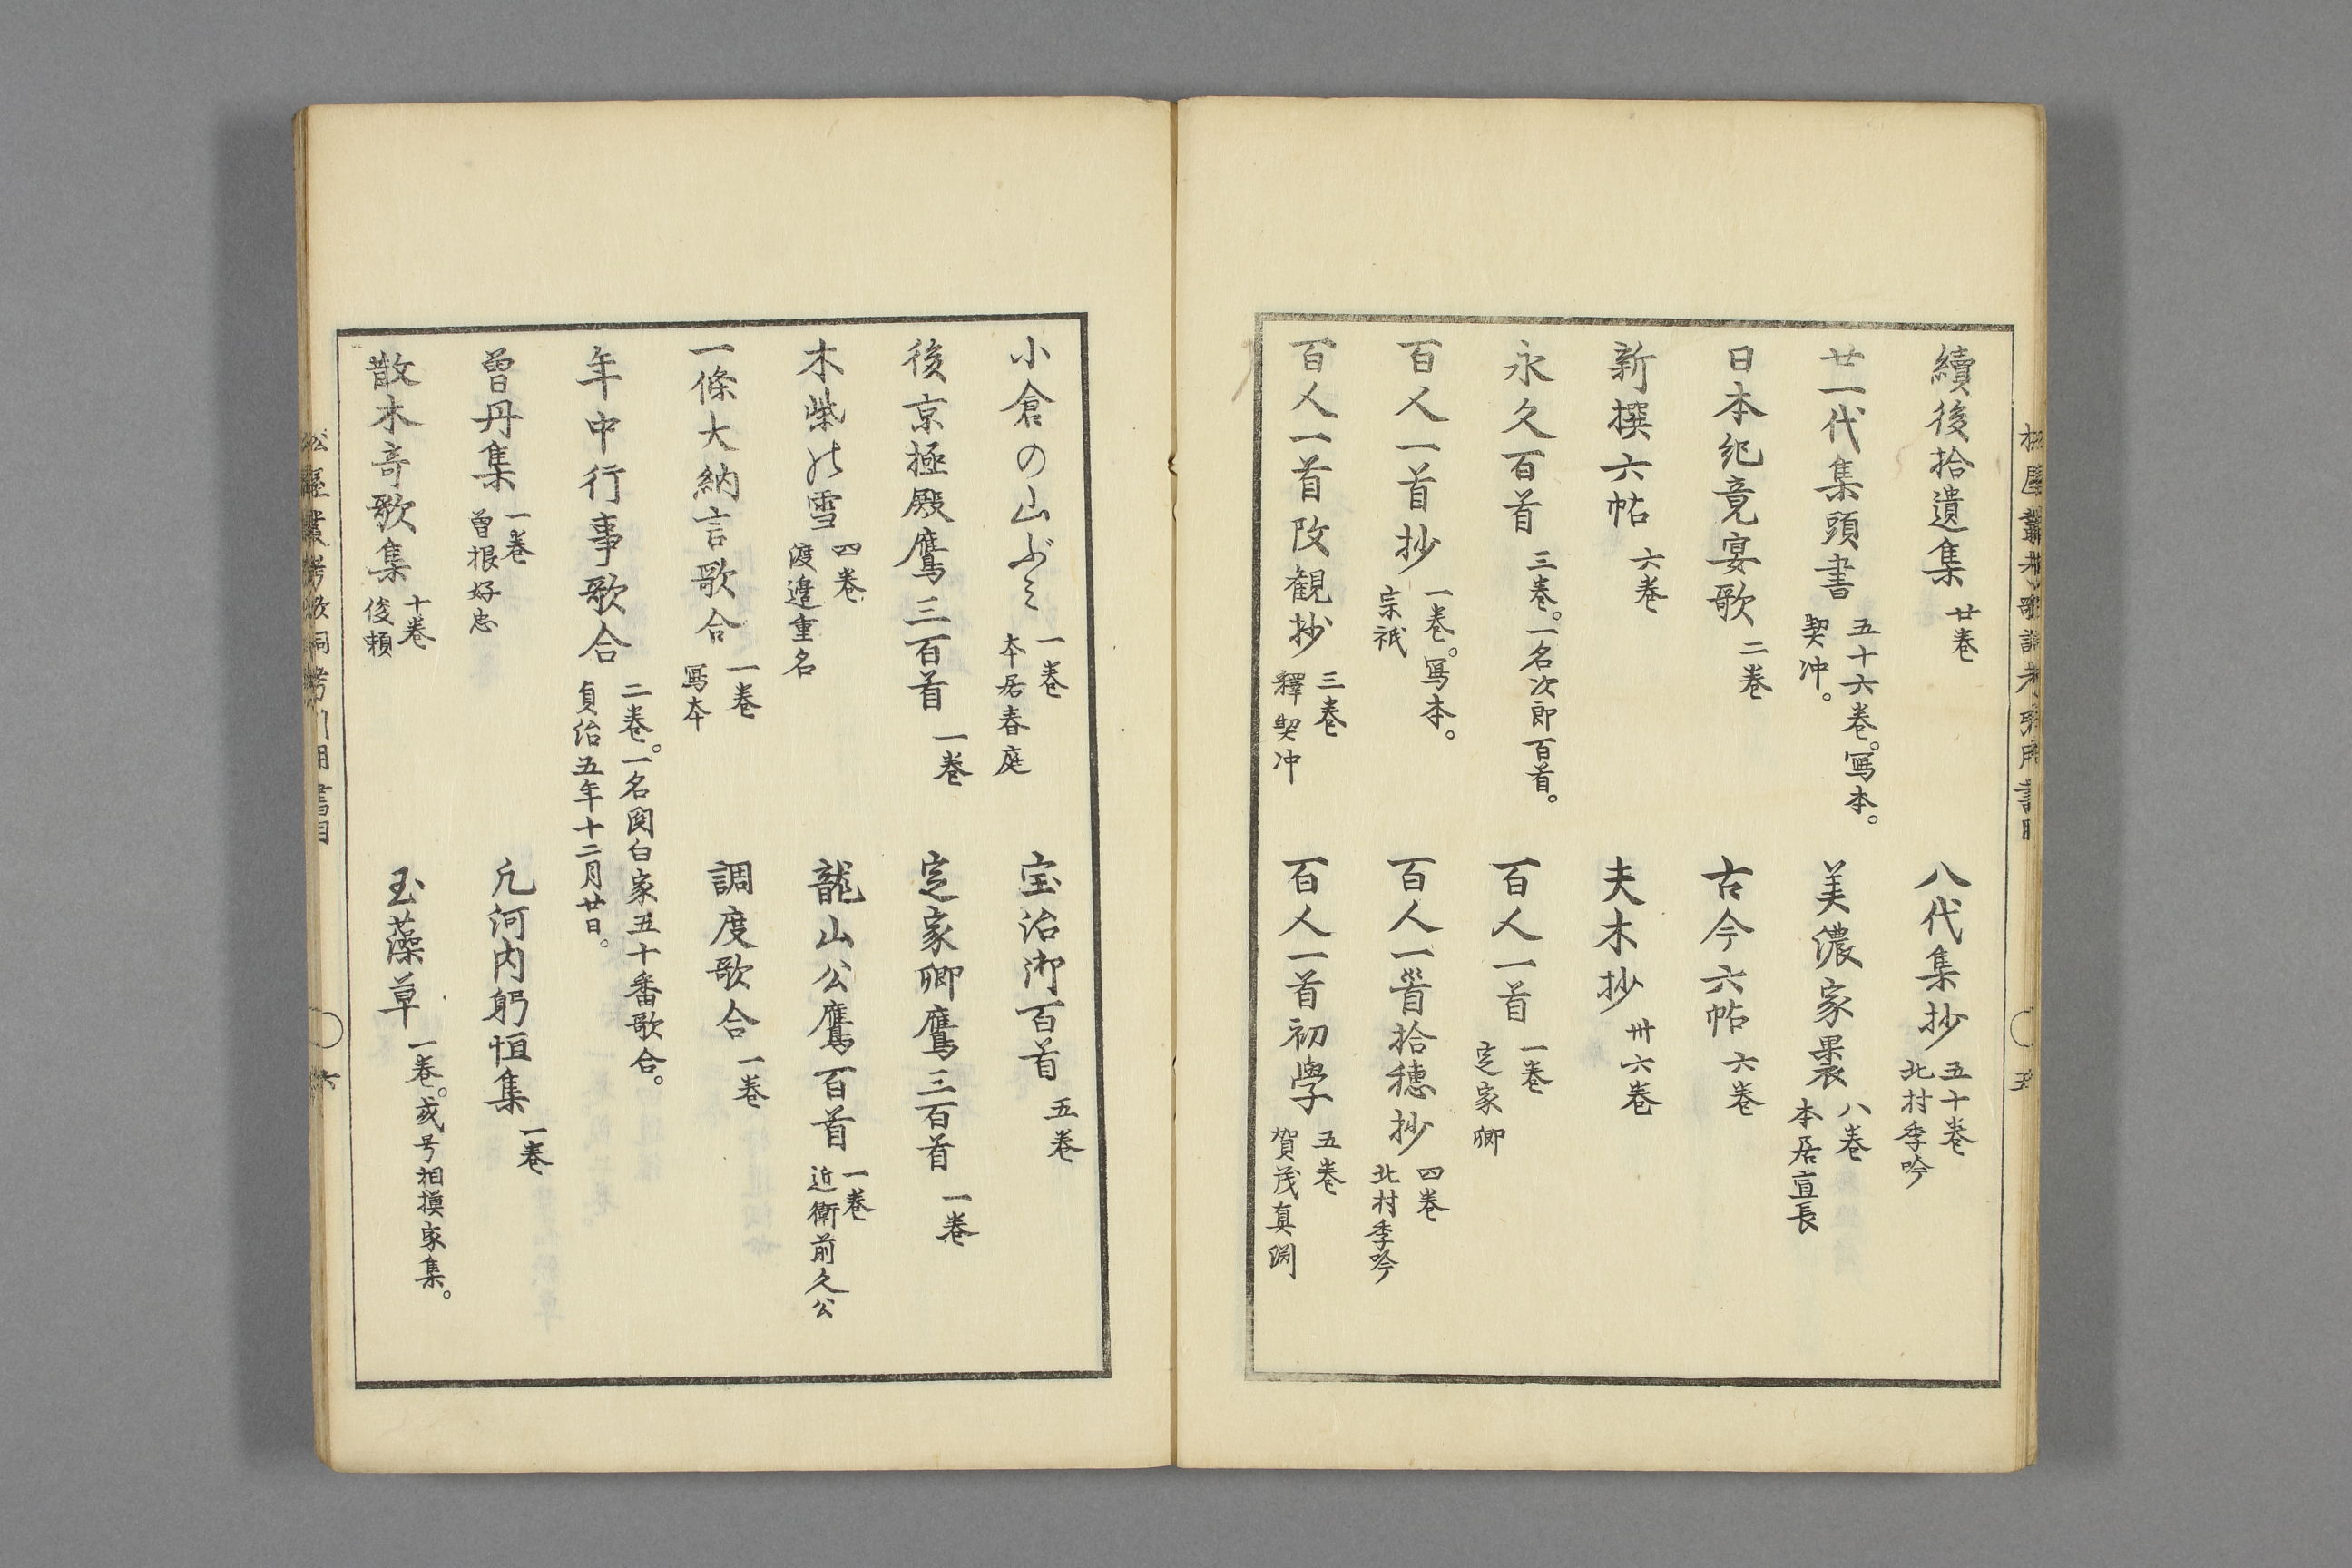 續後拾遺集 廿卷
八代集抄 五十卷 北村季吟
廿一代集頭書 五十六卷。寫本。契冲。
美濃家褁 八卷 本居宣長
日本紀竟宴歌 二卷
古今六帖 六卷
新撰六帖 六卷
夫木抄 卅六卷
永久百首 三卷。一名次郎百首。
百人一首 一卷 定家卿
百人一首抄 一卷。寫本。宗祇
百人一首拾穗抄 四卷 北村季吟
百人一首改観抄 三卷 釋契冲
百人一首初學 五卷 賀茂真渕
小倉の山ぶミ 一卷 本居春庭
宝治御百首 五卷
後京極殿鷹三百首 一卷
定家卿鷹三百首 一卷
木柴の雪 四卷 渡邉重名
龍山公鷹百首 一卷 近衛前久公
一條大納言歌合 一卷 寫本
調度歌合 一卷
年中行事歌合 二卷。一名関白家五十番歌合。貞治五年十二月廿日。
曾丹集 一卷 曾根好忠
凢河内躬恒集 一卷
散木奇歌集 十卷 俊頼
玉藻草 一卷。或号相摸家集。
六